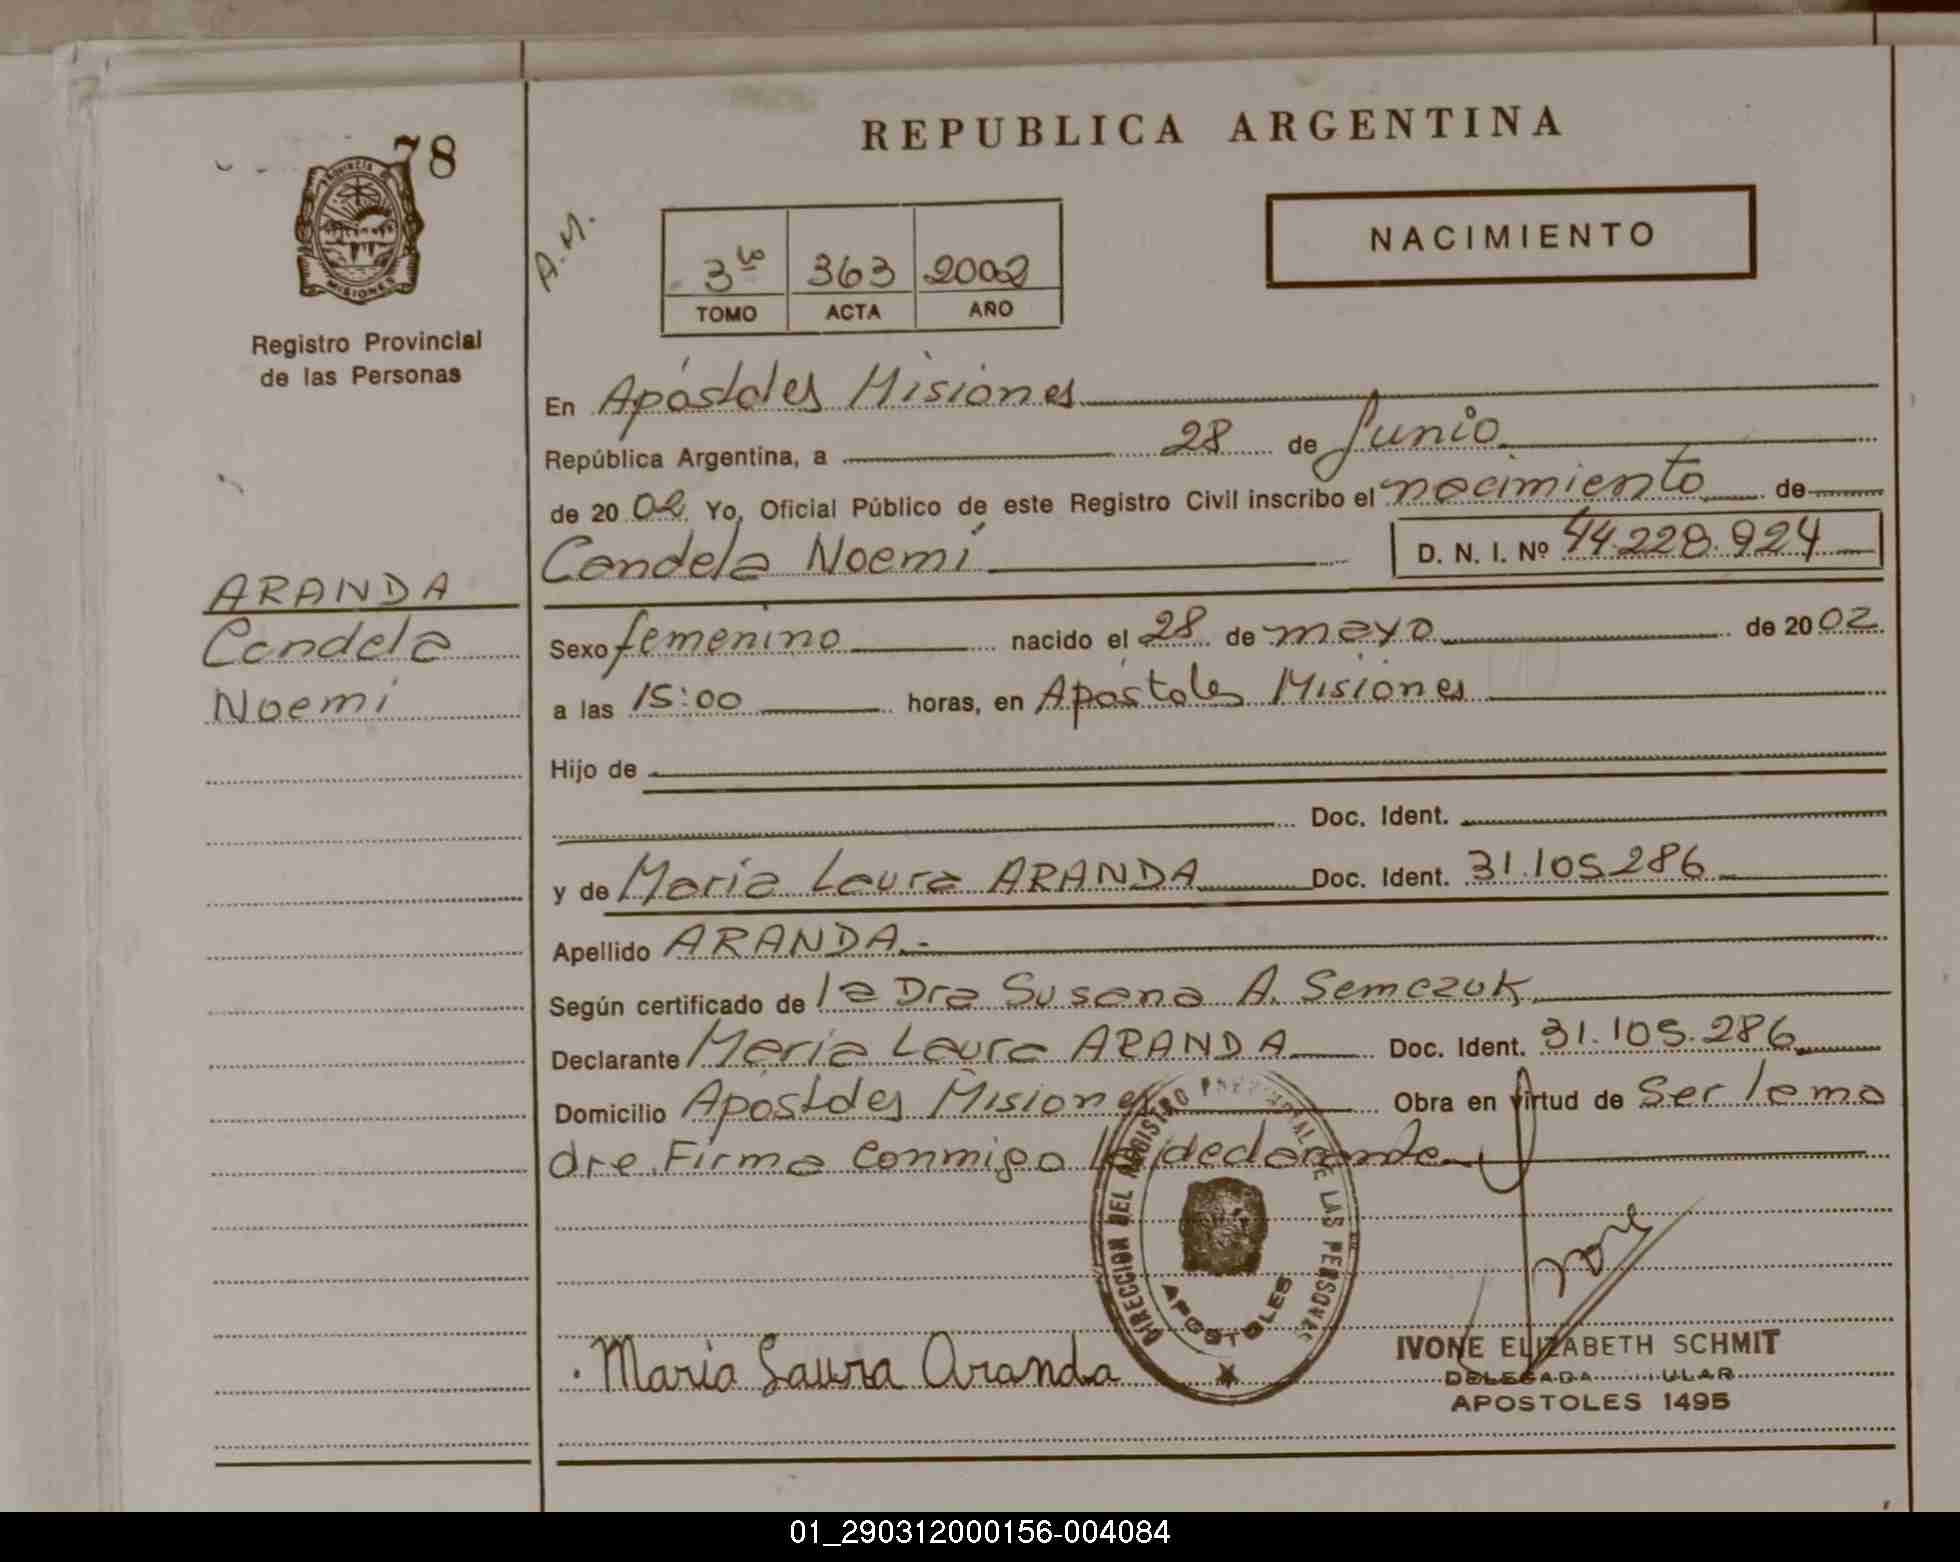 REPUBLICA ARGENTINA
78
PROVINCIA DE
MISIONES
Registro Provincial
de las Personas
A.M.
3ro 363 2002
TOMO ACTA AÑO
NACIMIENTO
En Apóstoles Misiones
República Argentina, a 28 de Junio
de 2002 Yo, Oficial Público de este Registro Civil inscribo el nacimiento de
Candela Noemí D. N. I. Nº 44.228.924
ARANDA
Candela
Noemi
Sexo femenino nacido el 28 de mayo de 2002
a las 15:00 horas, en Apóstoles Misiones
Hijo de
Doc. Ident.
y de María Laura ARANDA Doc. Ident. 31.105.286
Apellido ARANDA.-
Según certificado de la Dra Susana A. Semczuk
Declarante María Laura ARANDA Doc. Ident. 31.105.286
Domicilio Apóstoles Misiones Obra en virtud de Ser la ma
dre. Firma conmigo la declarante
DIRECCION DEL REGISTRO PROVINCIAL DE LAS PERSONAS
APOSTOLES
Maria Laura Aranda
IVONE ELIZABETH SCHMIT
DELEGADA
APOSTOLES 1495
01_290312000156-004084